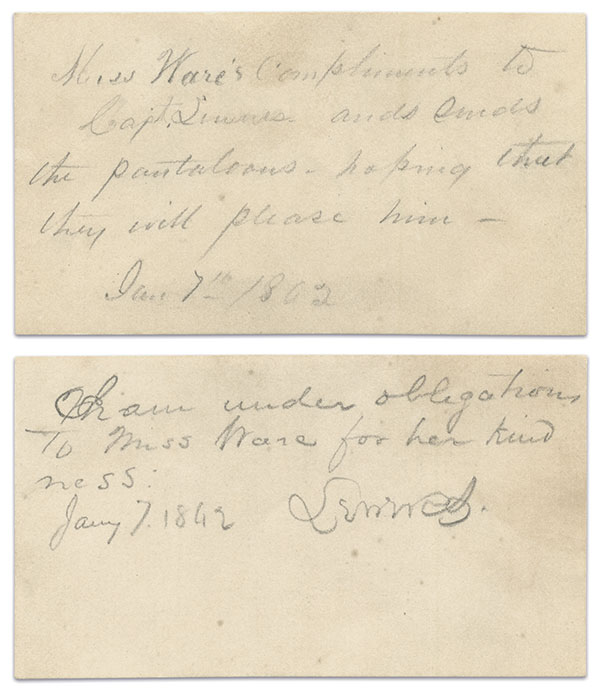 Miss Ware's Compliments to
Capt. Semmes and sends
the pantaloons - hoping that
they will please him -
Jan 7th 1862
I am under obligations
To Miss Ware for her kind
ness.
Jany 7. 1862